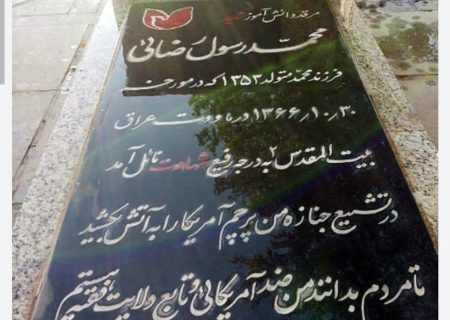 مرقد دانش آموز شهید
محمد رسول رضائی
فرزند محمد متولد ۱۳۵۳ که در مورخه
۱۳۶۶٫۱۰٫۳۰ در ماووت عراق
بیت المقدس ۲ به درجه رفیع شهادت نائل آمد
در تشییع جنازه من پرچم آمریکا را به آتش بکشید
تا مردم بدانند من ضد آمریکائی و تابع ولایت فقیه هستم